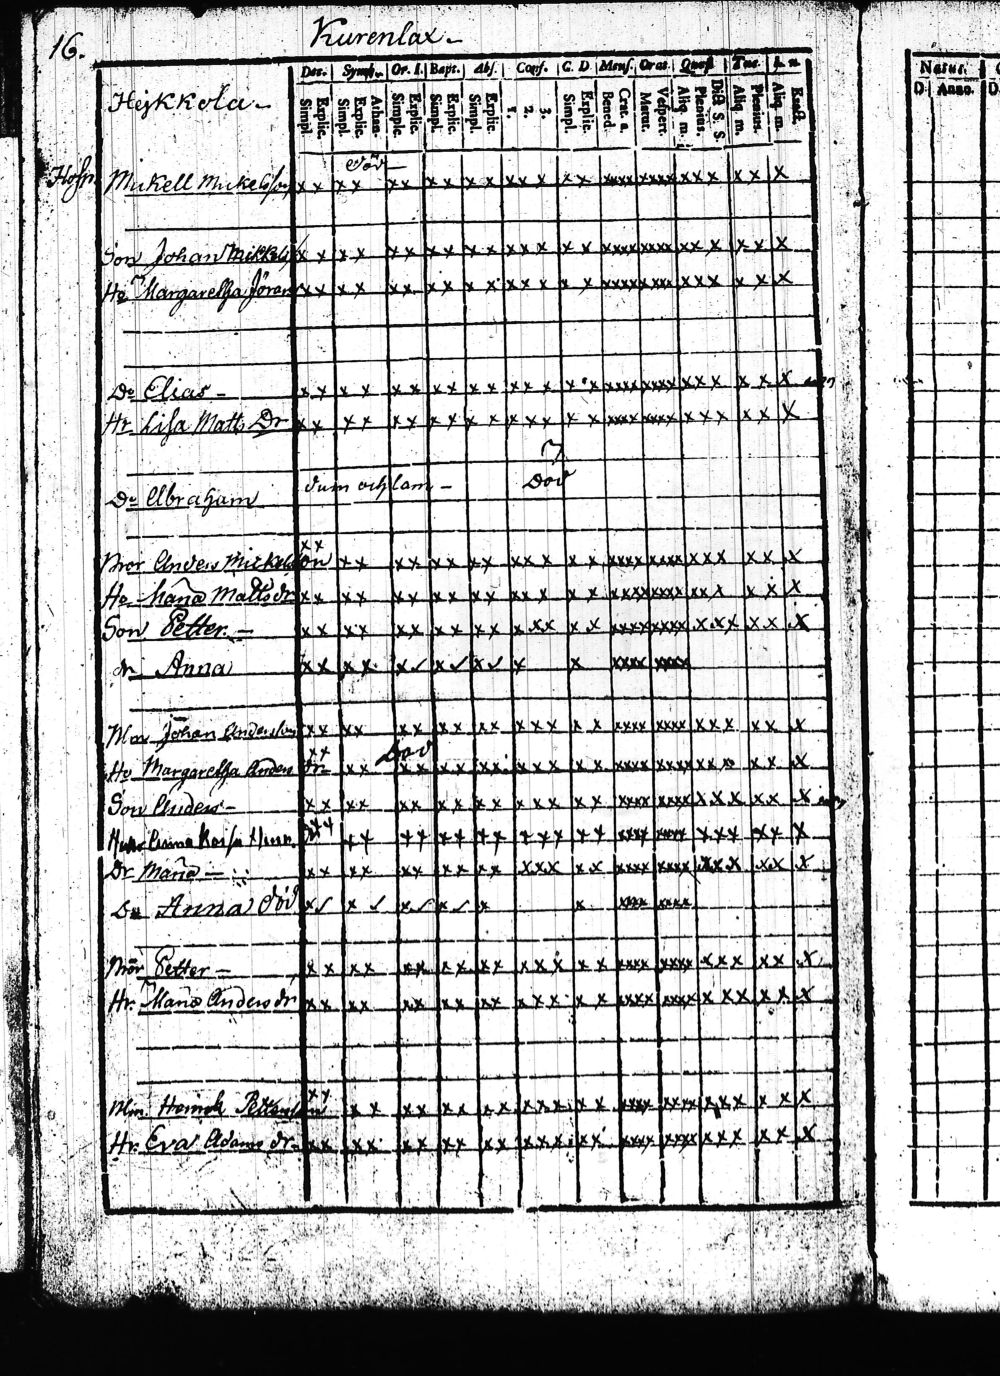 16. Kurenlax.
Dec. Symb. Or. d. Bapt. Abs. Conf. C. D. Mens. Orat. Quæst. Tuc. Natus.
Hejkkola
Simpl. Explic. Simpl. Explic. Athan. Simpl. Explic. Simpl. Explic. Simpl. Explic. 1. 2. 3. Simpl. Explic. Bened. Grat. a. Matut. Vespert. Aliq. m. Plenius. Dict. S. S. Aliq. m. Plenius. Aliq. m. Exact. D Anno.
död
Mickell Mickelsson x x x x x x x x x x x x x x x xxxx xxxx x x x x x x
Son Johan Mickels x x x x x x x x x x x x x x x xxxx xxxx x x x x x x
Ho Margaretha Jöran x x x x x x x x x x x x x x x xxxx xxxx x x x x x x
Do Elias x x x x x x x x x x x x x x x xxxx xxxx x x x x x x
Hr Lisa Matts Dr x x x x x x x x x x x x x x x xxxx xxxx x x x x x x
Do Abraham dum och lam död
x x
Bror Anders Mickelsson x x x x x x x x x x x x x xxxx xxxx x x x x x x
Ho Maria Matts dr x x x x x x x x x x x x x x x xxxx xxxx x x x x x x
Son Petter x x x x x x x x x x x x x x x xxxx xxxx x x x x x x
dr Anna x x x x x ✓ x ✓ x ✓ x x xxxx xxxx
Johan Andersson x x x x x x x x x x x x x x x xxxx xxxx x x x x x x
x x Död
Ho Margaretha Anders dr x x x x x x x x x x x x x xxxx xxxx x x x x x x
Son Anders x x x x x x x x x x x x x x x xxxx xxxx x x x x x x
Anna Kaisa x x x x x x x x x x x x x xxxx xxxx x x x x x x
Dr Maria x x x x x x x x x x x x x x x xxxx xxxx x x x x x x
Do Anna död x ✓ x ✓ x ✓ x ✓ x x xxxx xxxx
Bror Petter x x x x x x x x x x x x x x x xxxx xxxx x x x x x x
Hr. Maria Anders dr x x x x x x x x x x x x x x x xxxx xxxx x x x x x x
x x
Henrik Pettersson x x x x x x x x x x x x x xxxx xxxx x x x x x x
Hr. Eva Adams dr x x x x x x x x x x x x x x x xxxx xxxx x x x x x x